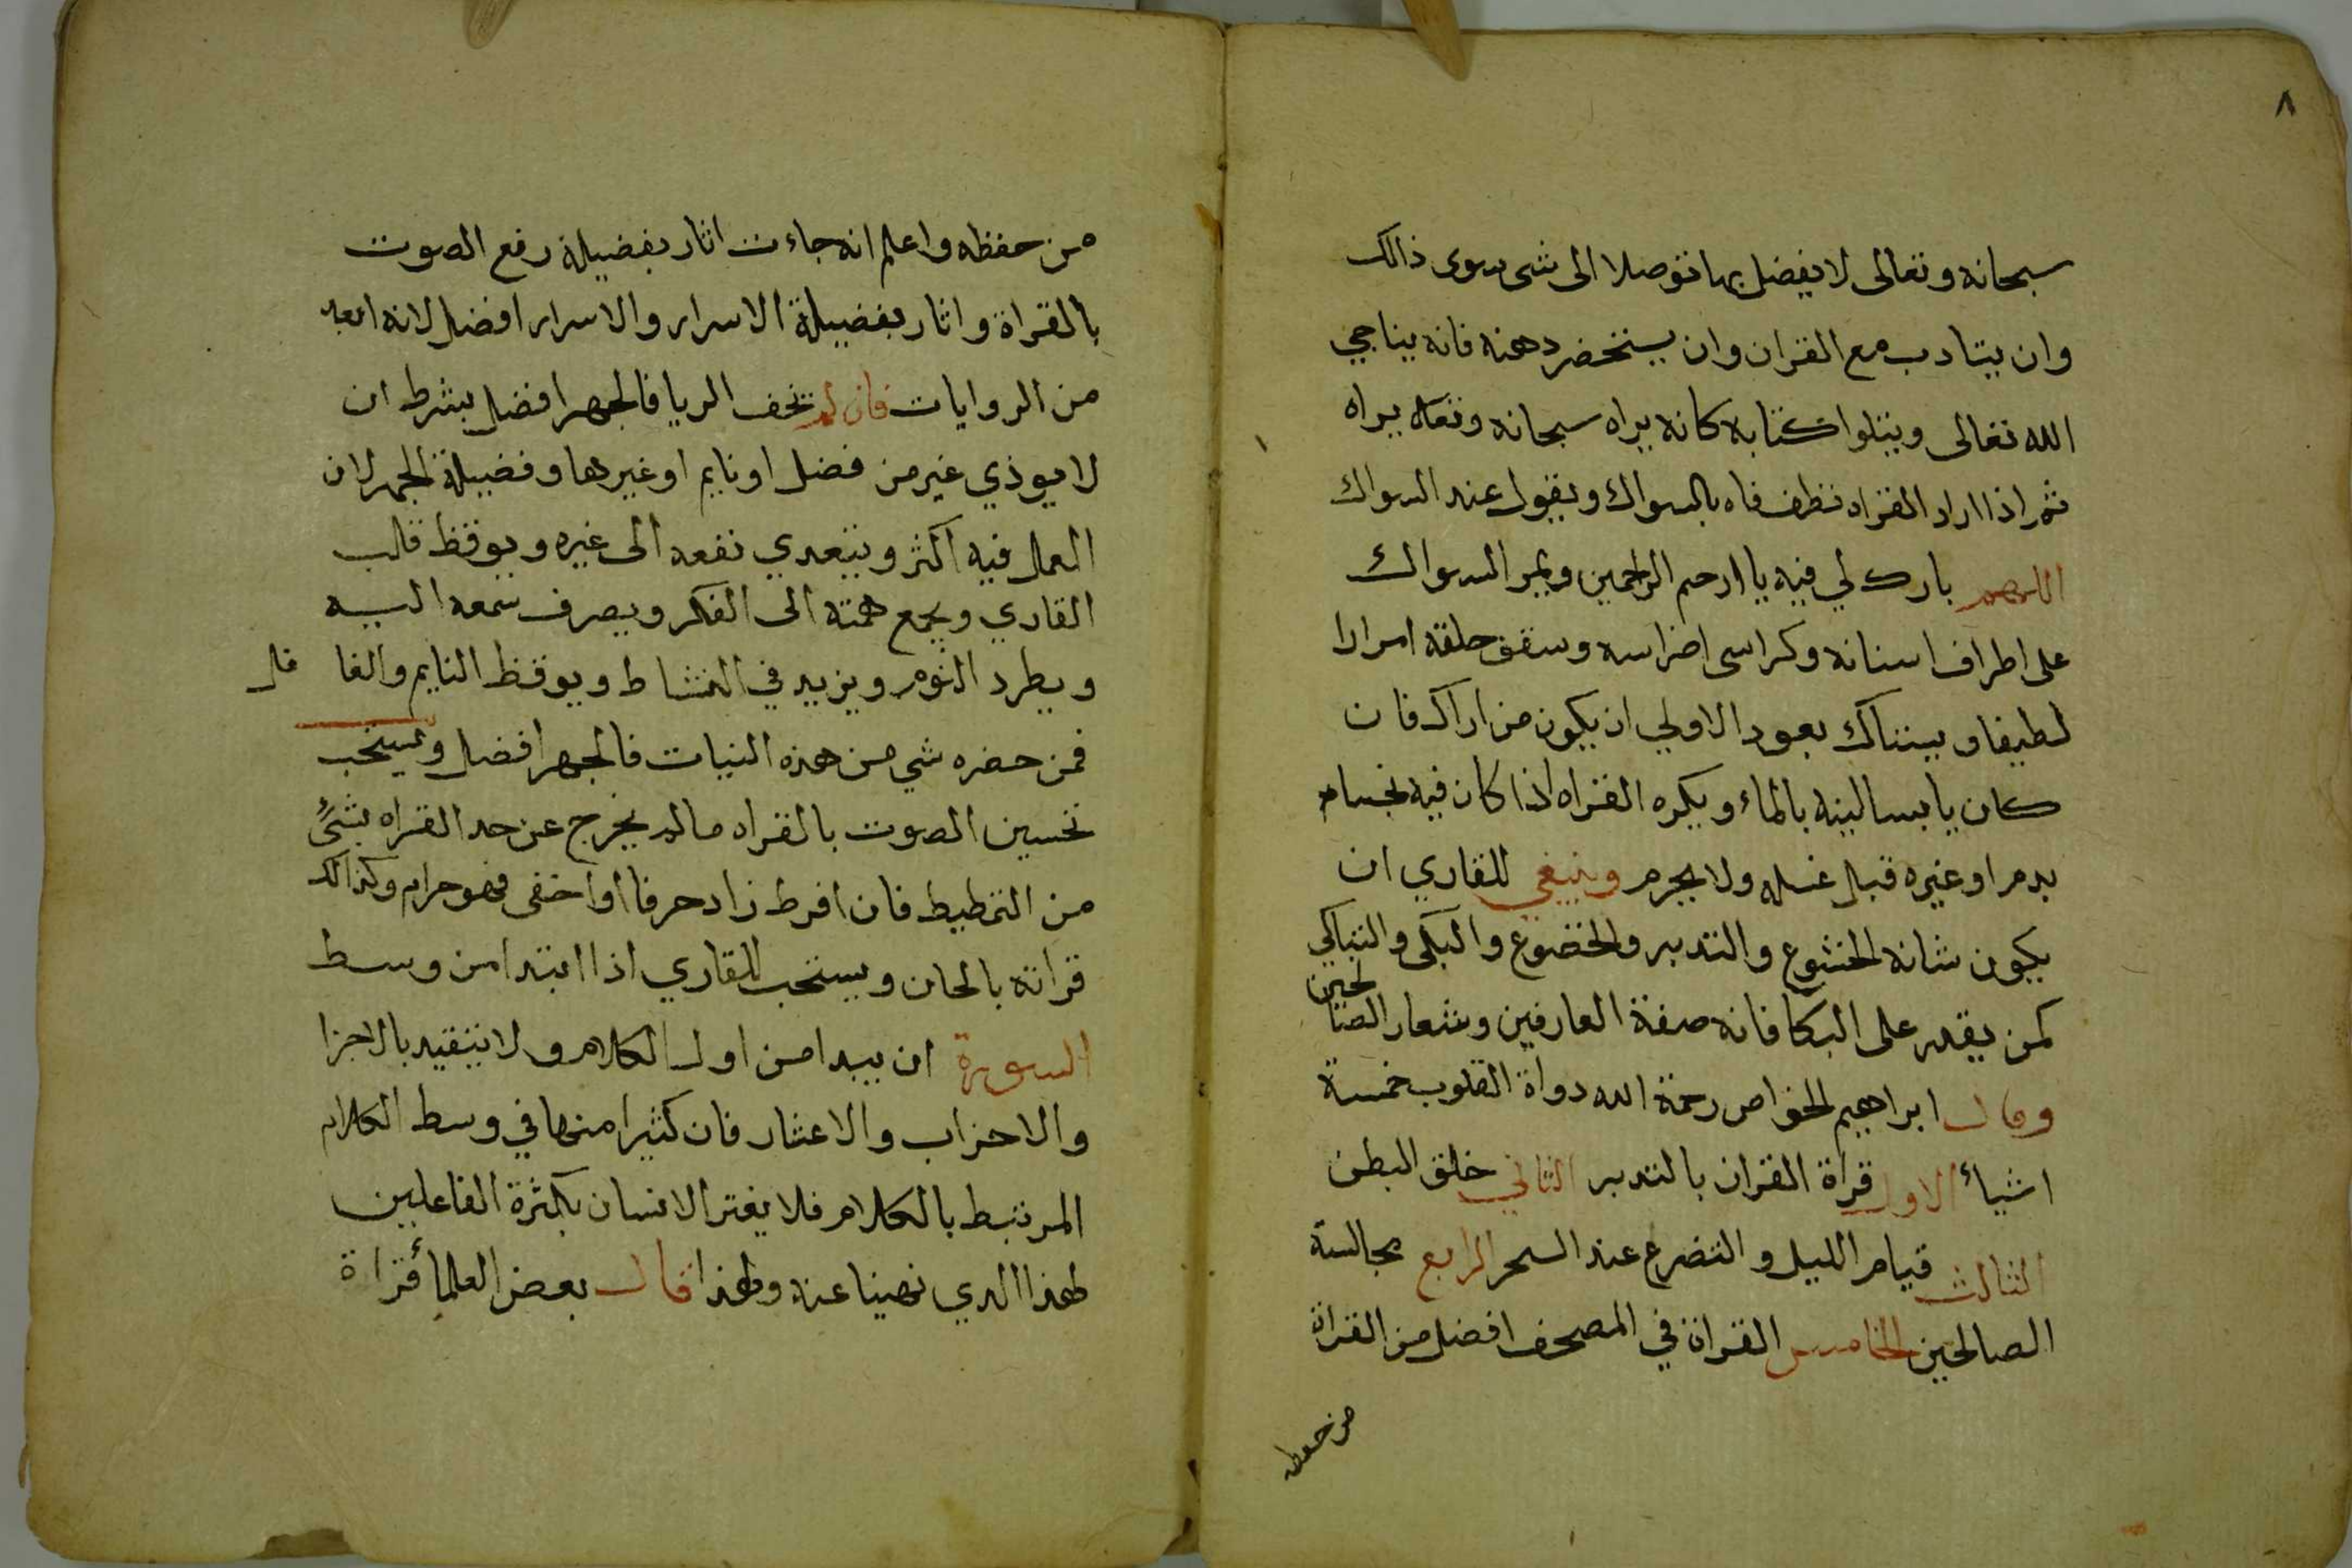 ٨
سبحانه وتعالى لا يفضل بها توصلا الى شى سوى ذالك
وان يتادب مع القران وان يستحضر دهنه فانه يناجي
الله تعالى ويتلوا كتابه كانه يراه سبحانه وتعالى يراه
ثم اذا اراد القراه نظف فاه بالسواك ويقول عند السواك
اللهم بارك لي فيه يا ارحم الراحمين ويمر السواك
على اطراف اسنانه وكراسى اضراسه وسقف حلقه امرارا
لطيفا ويستاك بعود الاولي ان يكون من اراك فان
كان يابسا لينه بالماء ويكره القراه اذا كان فيه نجسا
بدم او غيره قبل غسله ولا يحرم وينبغي للقاري ان
يكون شانه الخشوع والتدبر والخضوع والبكى والتباكي
لمن يقدر على البكا فانه صفة العارفين وشعار الصالحين
وقال ابراهيم الخواص رحمة الله دواة القلوب خمسة
اشياء الاول قراة القران بالتدبر الثاني خلق البطن
الثالث قيام الليل والتضرع عند السحر الرابع مجالسة
الصالحين الخامس القراة في المصحف افضل من القراة
من حفظه
من حفظه واعلم انه جاءت اثار بفضيلة رفع الصوت
بالقراة واثار بفضيلة الاسرار والاسرار افضل لانه ابعد
من الروايات فان لم يخف الريا فالجهر افضل بشرط ان
لا يوذي غير من فضل او نايم او غيرها وفضيلة الجهر لان
العمل فيه اكثر ويتعدي نفعه الى غيره ويوقظ قلب
القاري ويجمع همته الى الفكر ويصرف سمعه اليه
ويطرد النوم ويزيد في النشاط ويوقظ النايم والغا فل
فمن حضره شي من هذه النيات فالجهر افضل ويستحب
تحسين الصوت بالقراه مالم يخرج عن حد القراه بشئ
من التمطيط فان افرط زاد حرفا او اخفى فهو حرام وكذالك
قراته بالحان ويستحب للقاري اذا ابتدا من وسط
السورة ان يبدا من اول الكلام ولا يتقيد بالاجزا
والاحزاب والاعشار فان كثيرا منها في وسط الكلام
المرتبط بالكلام فلا يغتر الانسان بكثرة الفاعلين
لهذا الدي نهينا عنه ولهذا قال بعض العلمأ قراة